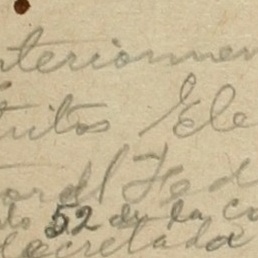 nteriormen
tritos Ele
toral Fed
lo 52 de la co
decretada